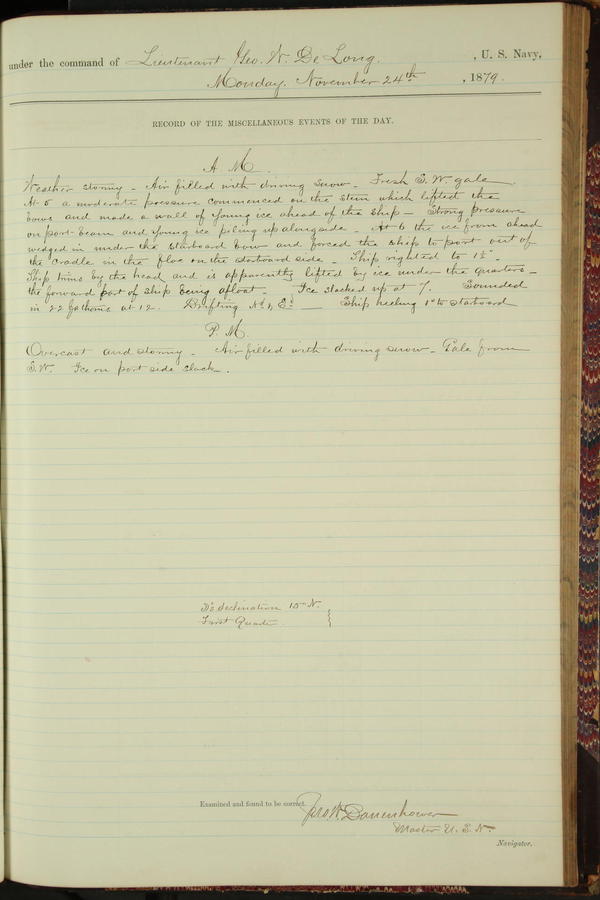 under the command of Lieutenant Geo. W. De Long, , U. S. Navy,
Monday, November 24th , 1879.
RECORD OF THE MISCELLANEOUS EVENTS OF THE DAY.
A M.
Weather stormy – Air filled with driving snow – Fresh S.W. gale
At 5 a moderate pressure commenced on the stem which lifted the
bows and made a wall of young ice ahead of the ship – Strong pressure
on port beam and young ice piling up alongside – At 6 the ice from ahead
wedged in under the starboard bow and forced the ship to port out of
the cradle in the floe on the starboard side – Ship righted to 1½°
Ship trims by the head and is apparently lifted by ice under the quarters –
the forward part of ship being afloat – Ice slacked up at 7. Sounded
in 22 fathoms at 12. Drifting Nd & Ed — Ship heeling 1° to starboard
P. M.
Overcast and stormy – Air filled with driving snow – Gale from
S.W. Ice on port side slack.
declination 15° N.
First Quarter
Examined and found to be correct.
Jno. W. Danenhower
Master U. S. N.
Navigator.